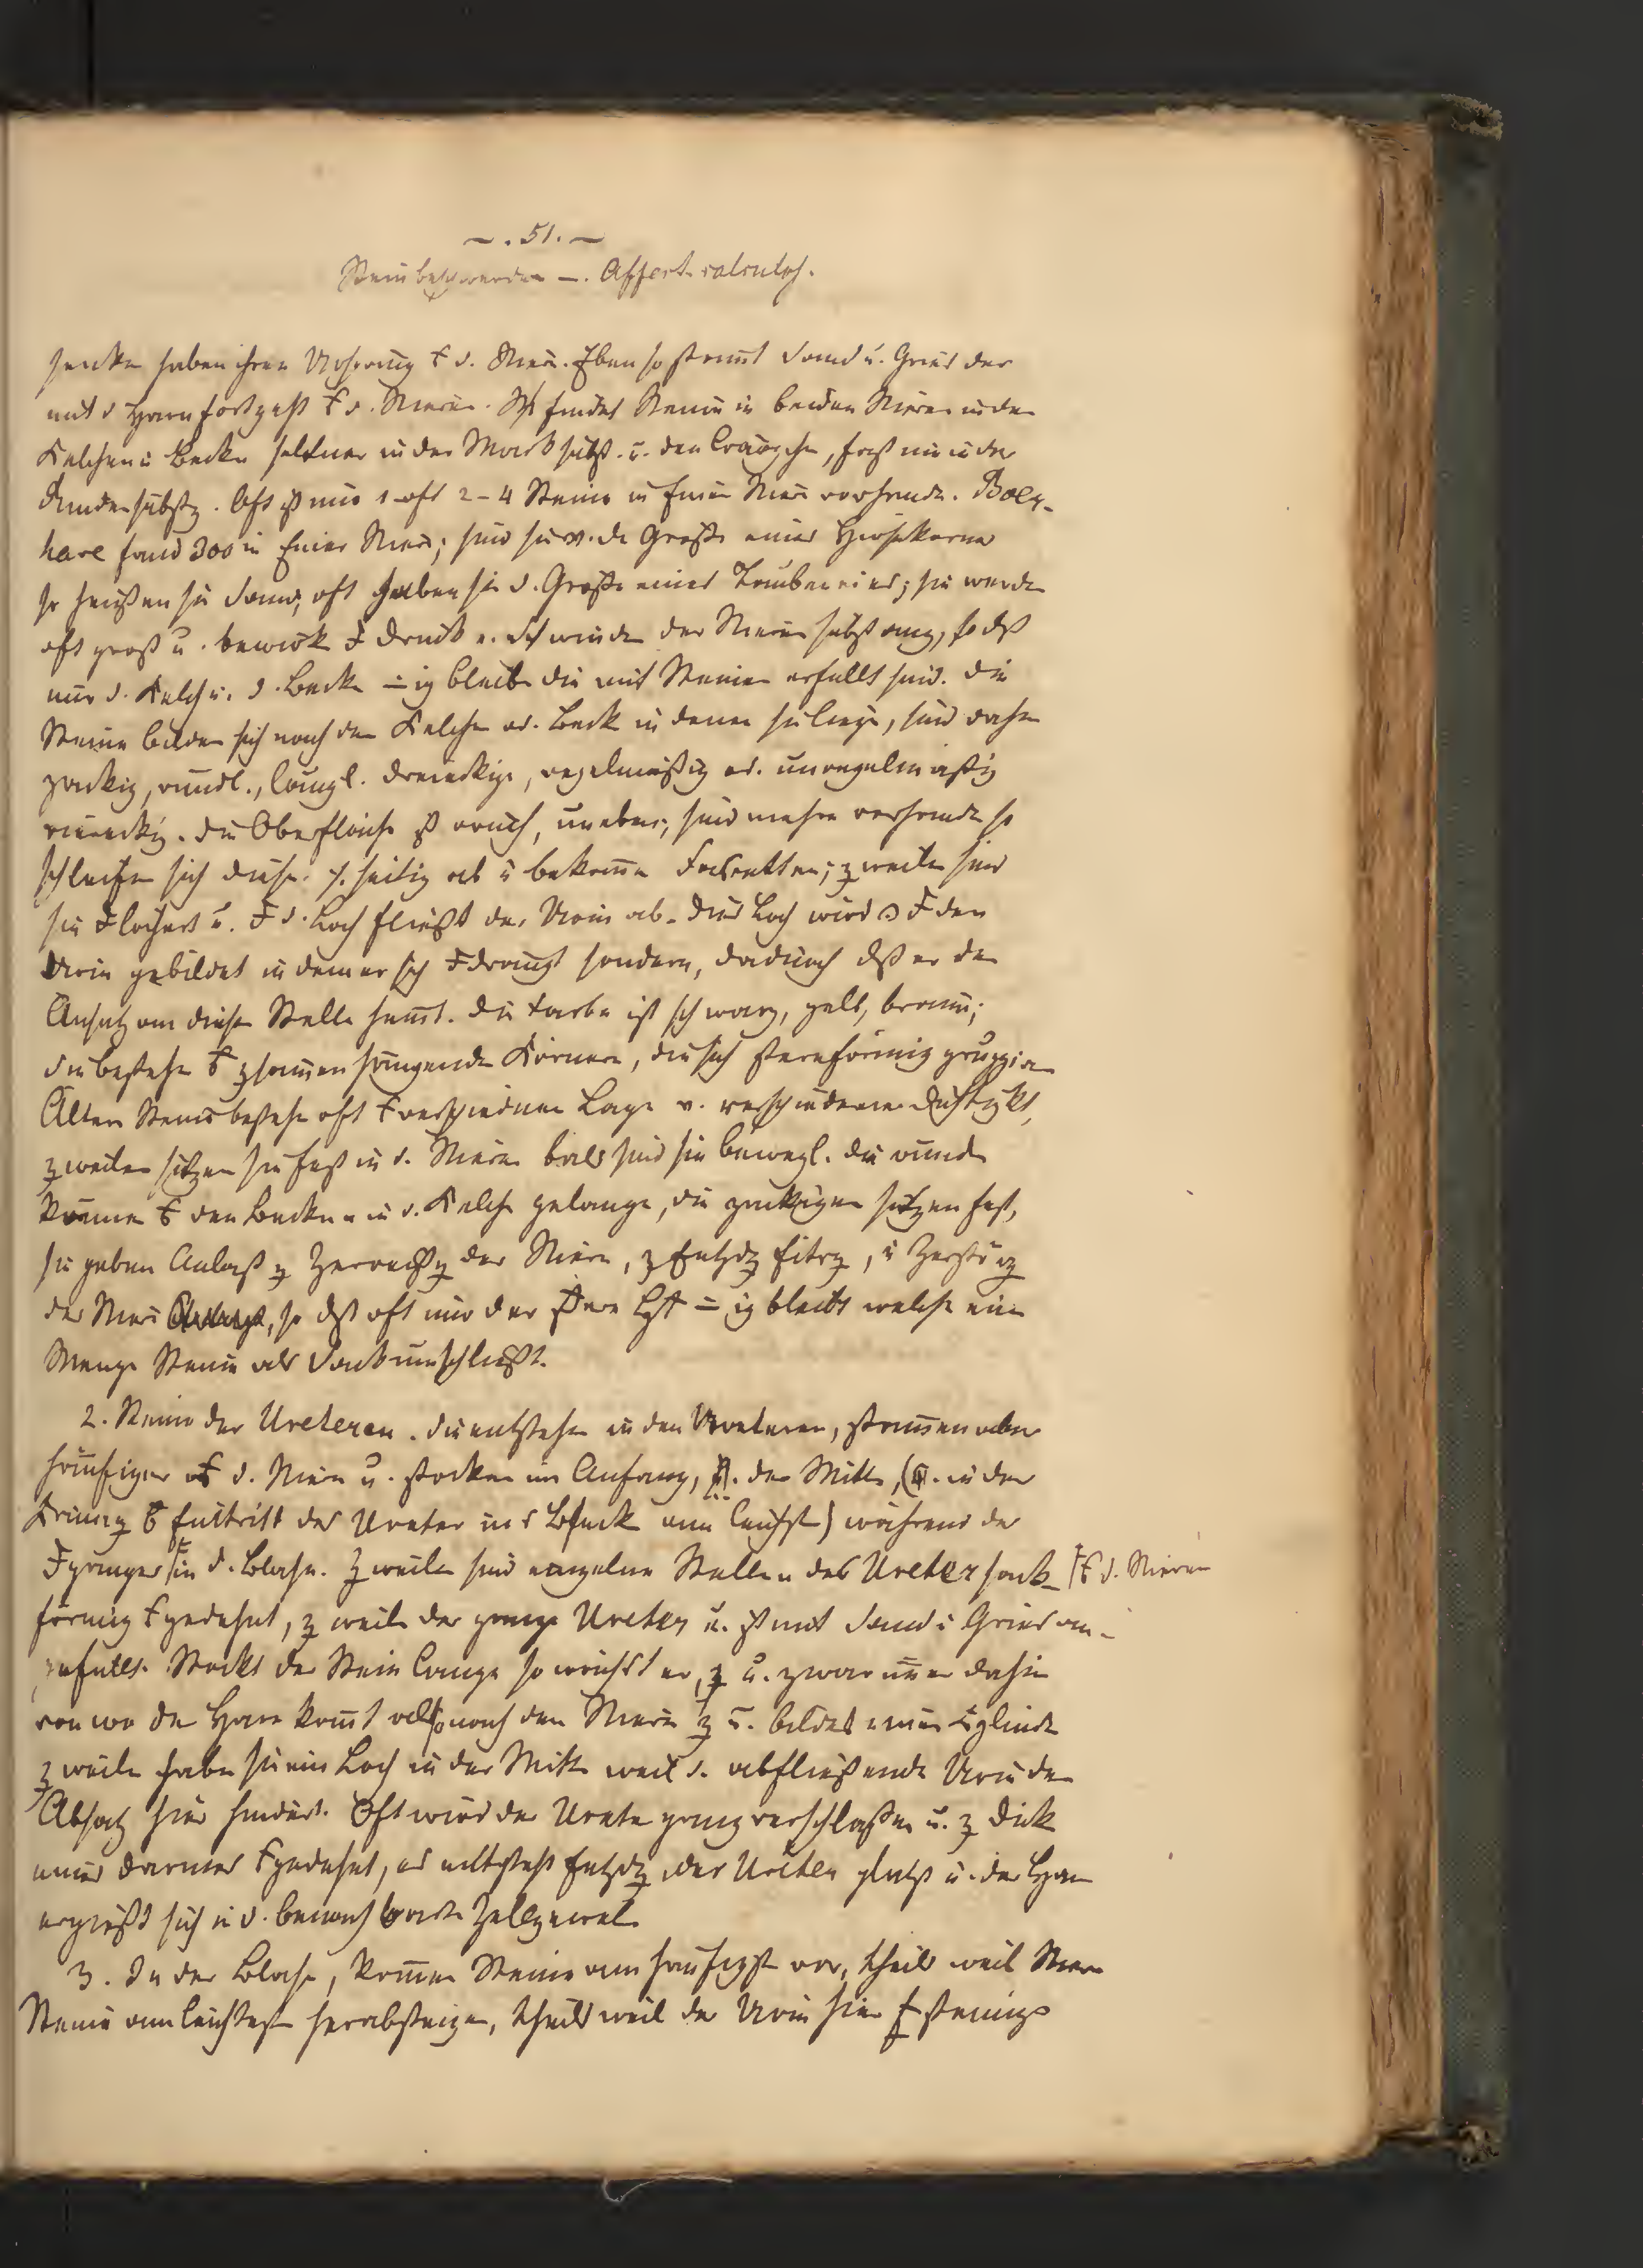 — . 51. —
Steinbeschwerden —. Affect. calculos.
haben ihren Ursprung d. Niere. Eben so stammt Sand u. Gries der
mit d Harn fortgeht d. Niere. findet Steine in beiden Nieren in den
Kelchen u Becken seltner in der Marksubst. u. den, fast nie in der
Rindensubstz. Oft ist nur 1 oft 2-4 Steine in Einer Niere vorhande. Boer-
have fand 300 in Einer Niere; sind sie v. der Größe eines Hirsekorns
so heißen sie Sand, oft haben sie d. Größe eines Taubeneies; sie werde
oft groß u. bewirk Druck u. Schwinde der Nierensubstanz, so dß
nur d. Kelch u. d. Becke ig bleibe die mit Steinen erfüllt sind. Die
Steine bilden sich nach den Kelche od. Beck in denen sie liege, sind daher
zackig, rundl., längl. dreieckige, regelmäßig od. unregelmäßig
viereckig. Die Oberfläche ist rauh, uneben; sind mehre vorhande so
schleifen sich diese seitig ab u bekomme Facetten; zweile sind
sie löchert u. d. Loch fließt der Urin ab. Dies Loch wird den
Urin gebildet in dem er sich drängt sondern, dadurch dß er de
Ansatz an diese Stelle hemt. Die Farbe ist schwarz, gelb, braun;
Sie bestehe zsamenhängende Körnern, die sich sternförmig gruppire
Ältere Steine bestehe oft verschiedene Lage v. verschiedener Dichtgkt,
zweilen sitzen sie fest in d. Niere bald sind sie bewegl. die runde
könne den Becken in d. Kelche gelange, die zackigen sitzen fest,
sie geben Anlaß z der Niere, z Entzdg Eitrg, u Zerstörg
der Niere, so dß oft nur der ig bleibt welche eine
Menge Steine als Sack umschließt.
2. Steine der Ureteren. Sie entstehe in den Ureteren, stammen aber
häufiger d. Niere u. stocken im Anfang, der Mitte, (in der
Krümg Eintritt des Ureter ins am leichtst) während der
ganges in d. Blase. Zweile sind einzelne Stellen des Ureter sack- d. Nieren
förmig gedehnt, z weile der ganze Ureter u. ist mit Sand u Gries an-
gefüllt. Stockt der Stein lange so wächst er, z u. zwar imer dahin
von wo der Harn komt also nach den Niere z u. bildet einen Cylinde
z weile habe sie ein Loch in der Mitte weil d. abfließende Urin de
Absatz hier hindert. Oft wird der Urete ganz verschloßen u. z Dicke
eines Darmes gedehnt, es entsteht Entzdg der Ureter platzt u. der Harn
ergießt sich in d. benachbarte Zellgewebe
3. In der Blase, kommen Steine am häufigste vor, theils weil Niere
Steine am leichteste herabsteige, theils weil der Urin hier